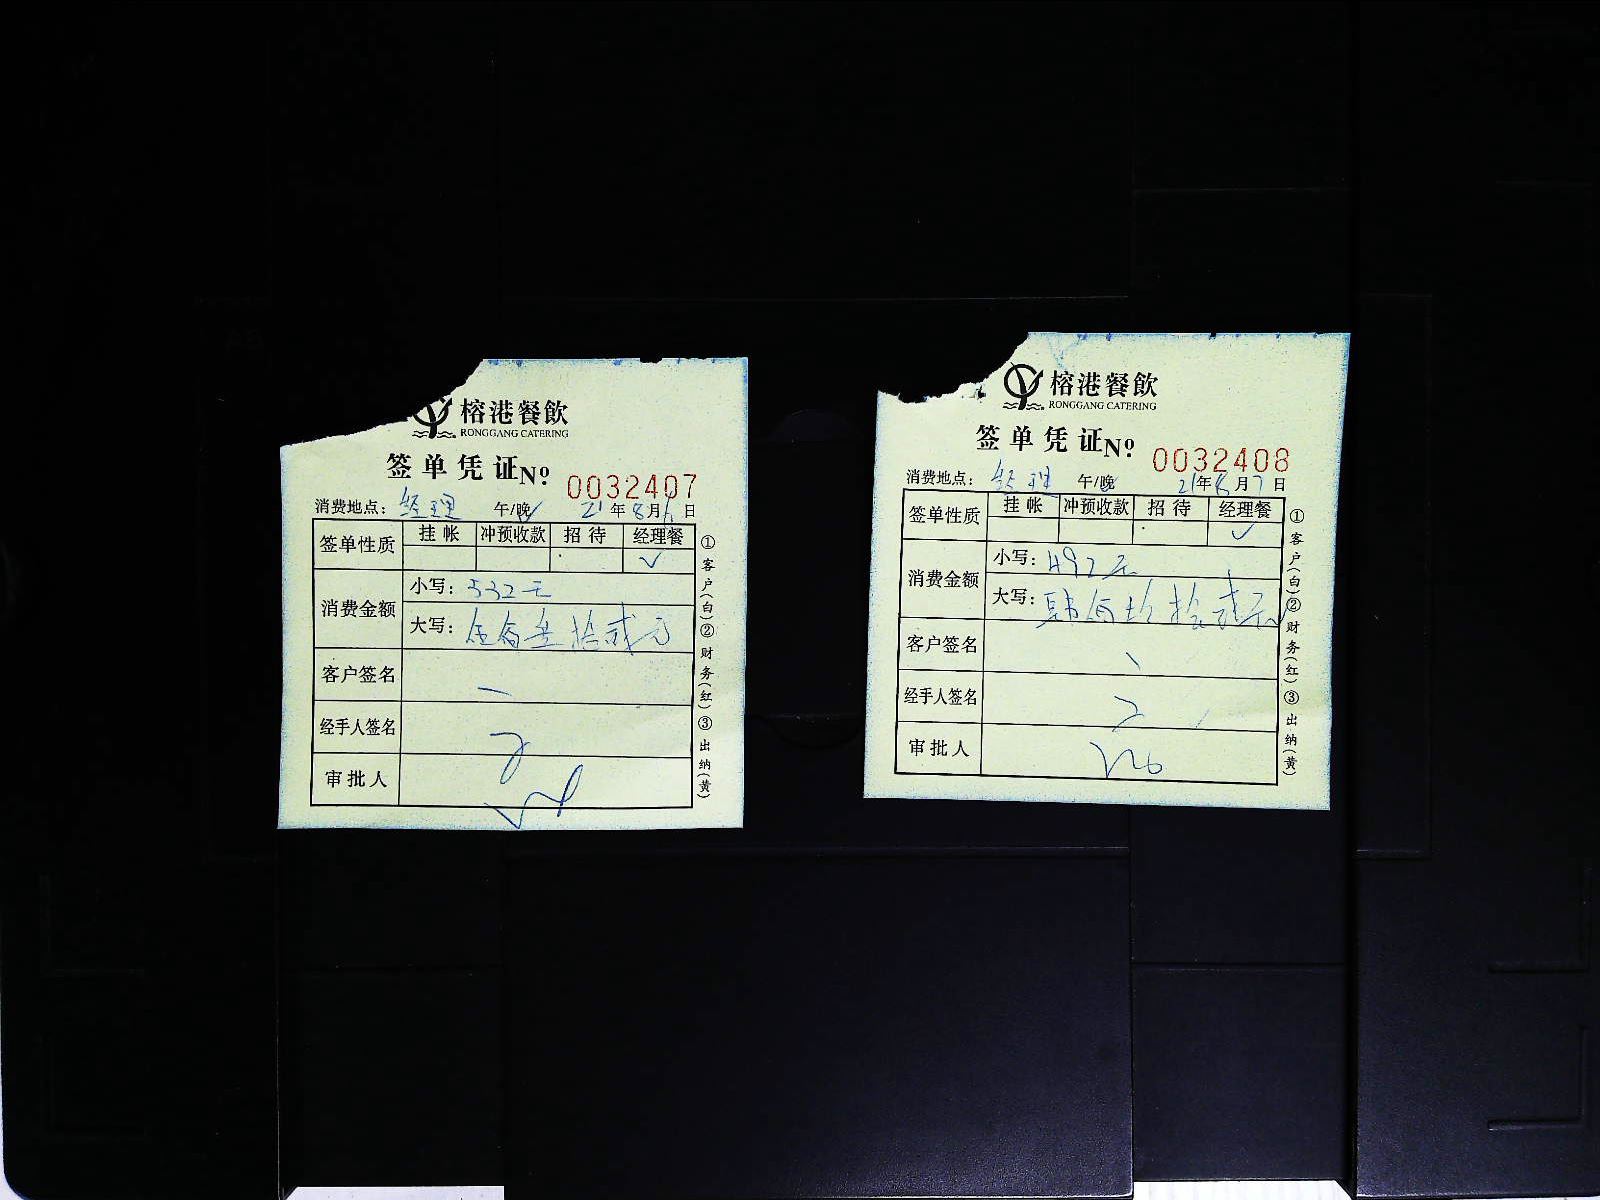 榕港餐飲
RONGGANG CATERING
签单凭证№ 0032407
消费地点：经理 午/晚 21年8月6日
签单性质 挂帐 冲预收款 招待 经理餐
✓
消费金额 小写：532元
大写：伍佰叁拾贰元
客户签名
经手人签名
审批人
①客户(白)②财务(红)③出纳(黄)
榕港餐飲
RONGGANG CATERING
签单凭证№ 0032408
消费地点：经理 午/晚 21年8月7日
签单性质 挂帐 冲预收款 招待 经理餐
✓
消费金额 小写：492元
大写：肆佰玖拾贰元
客户签名
经手人签名
审批人
①客户(白)②财务(红)③出纳(黄)